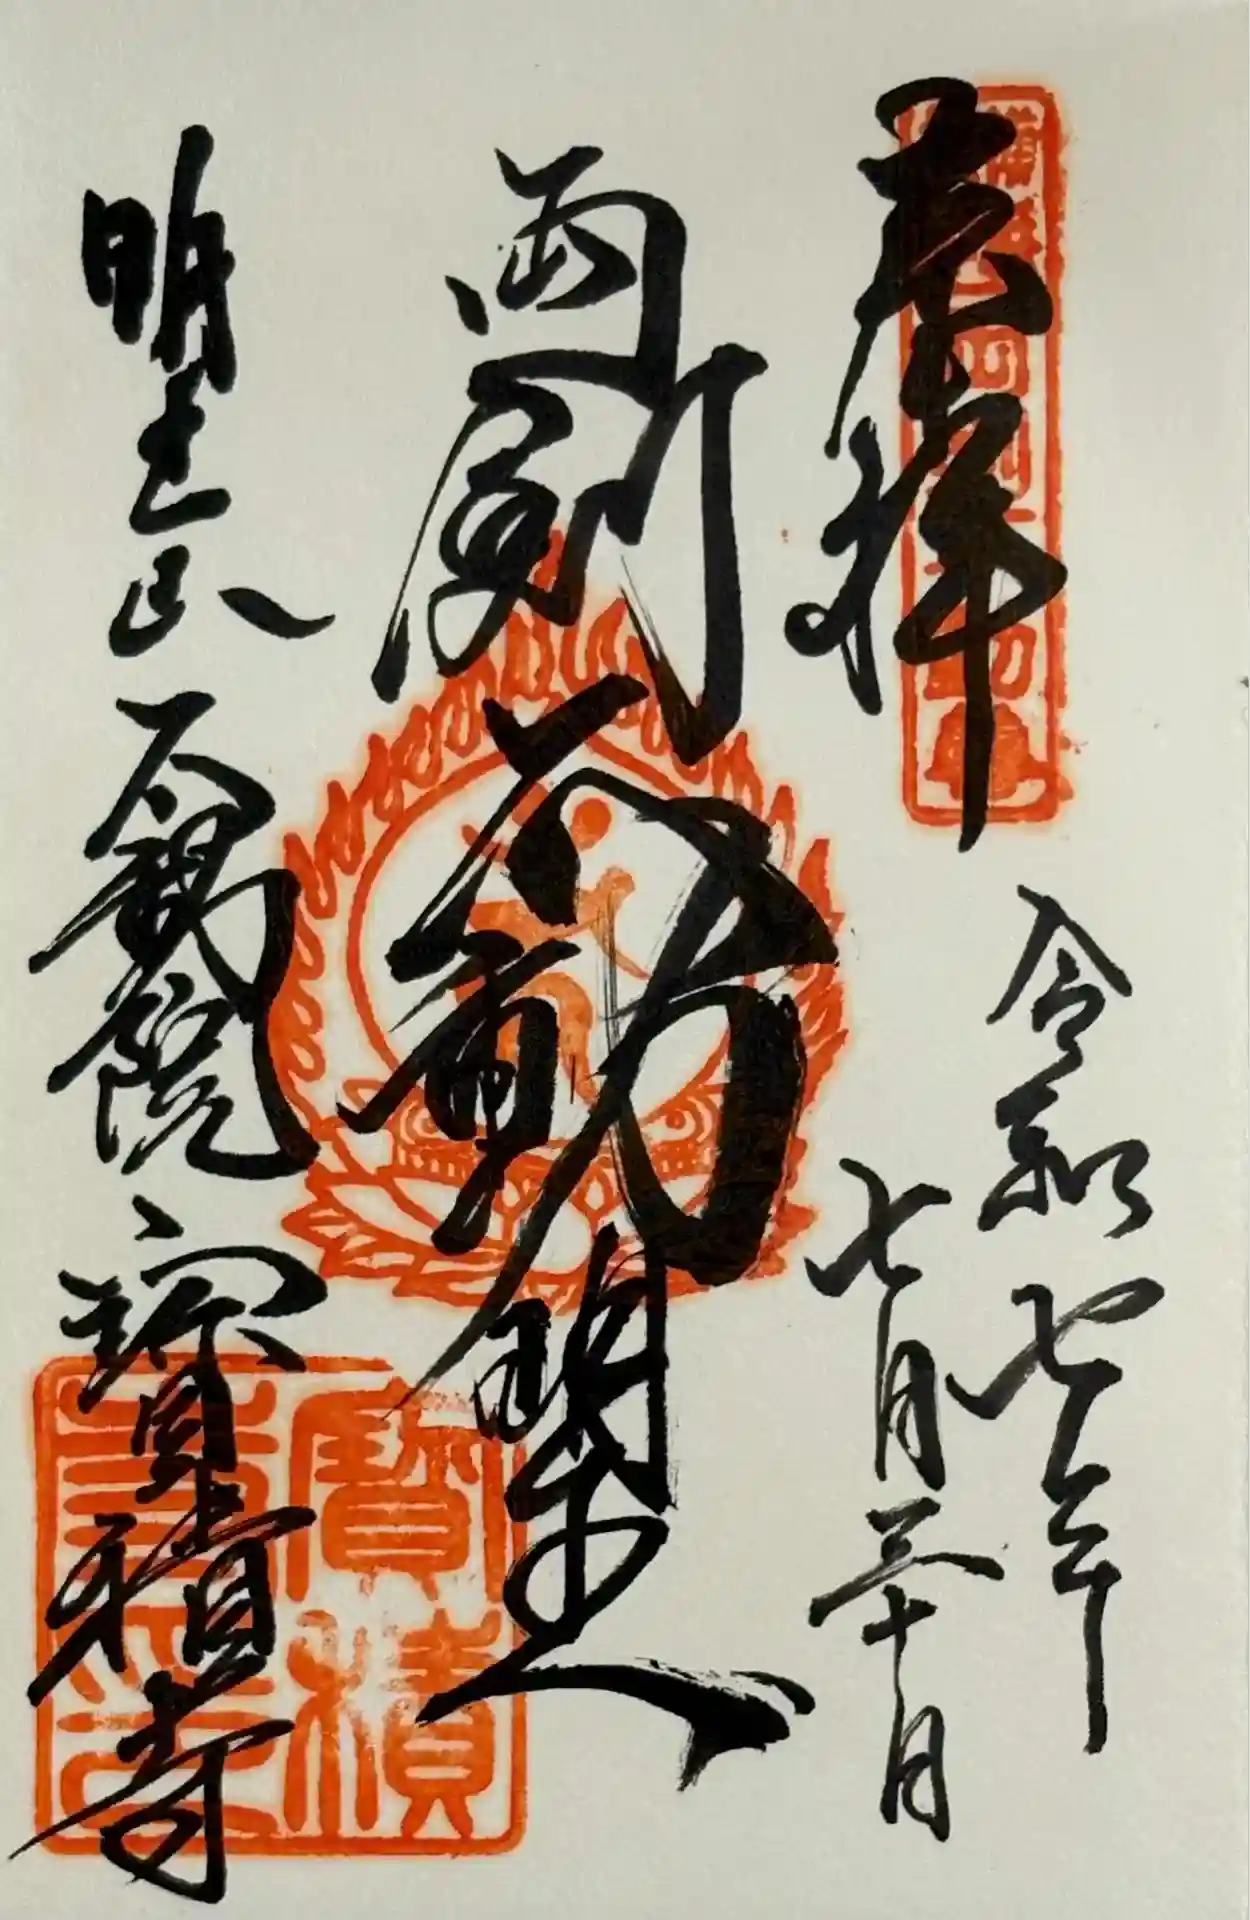 奉拝
令和七年
七月三十日
不動明王
明王山
不動院
寶積寺
寶積
寺印